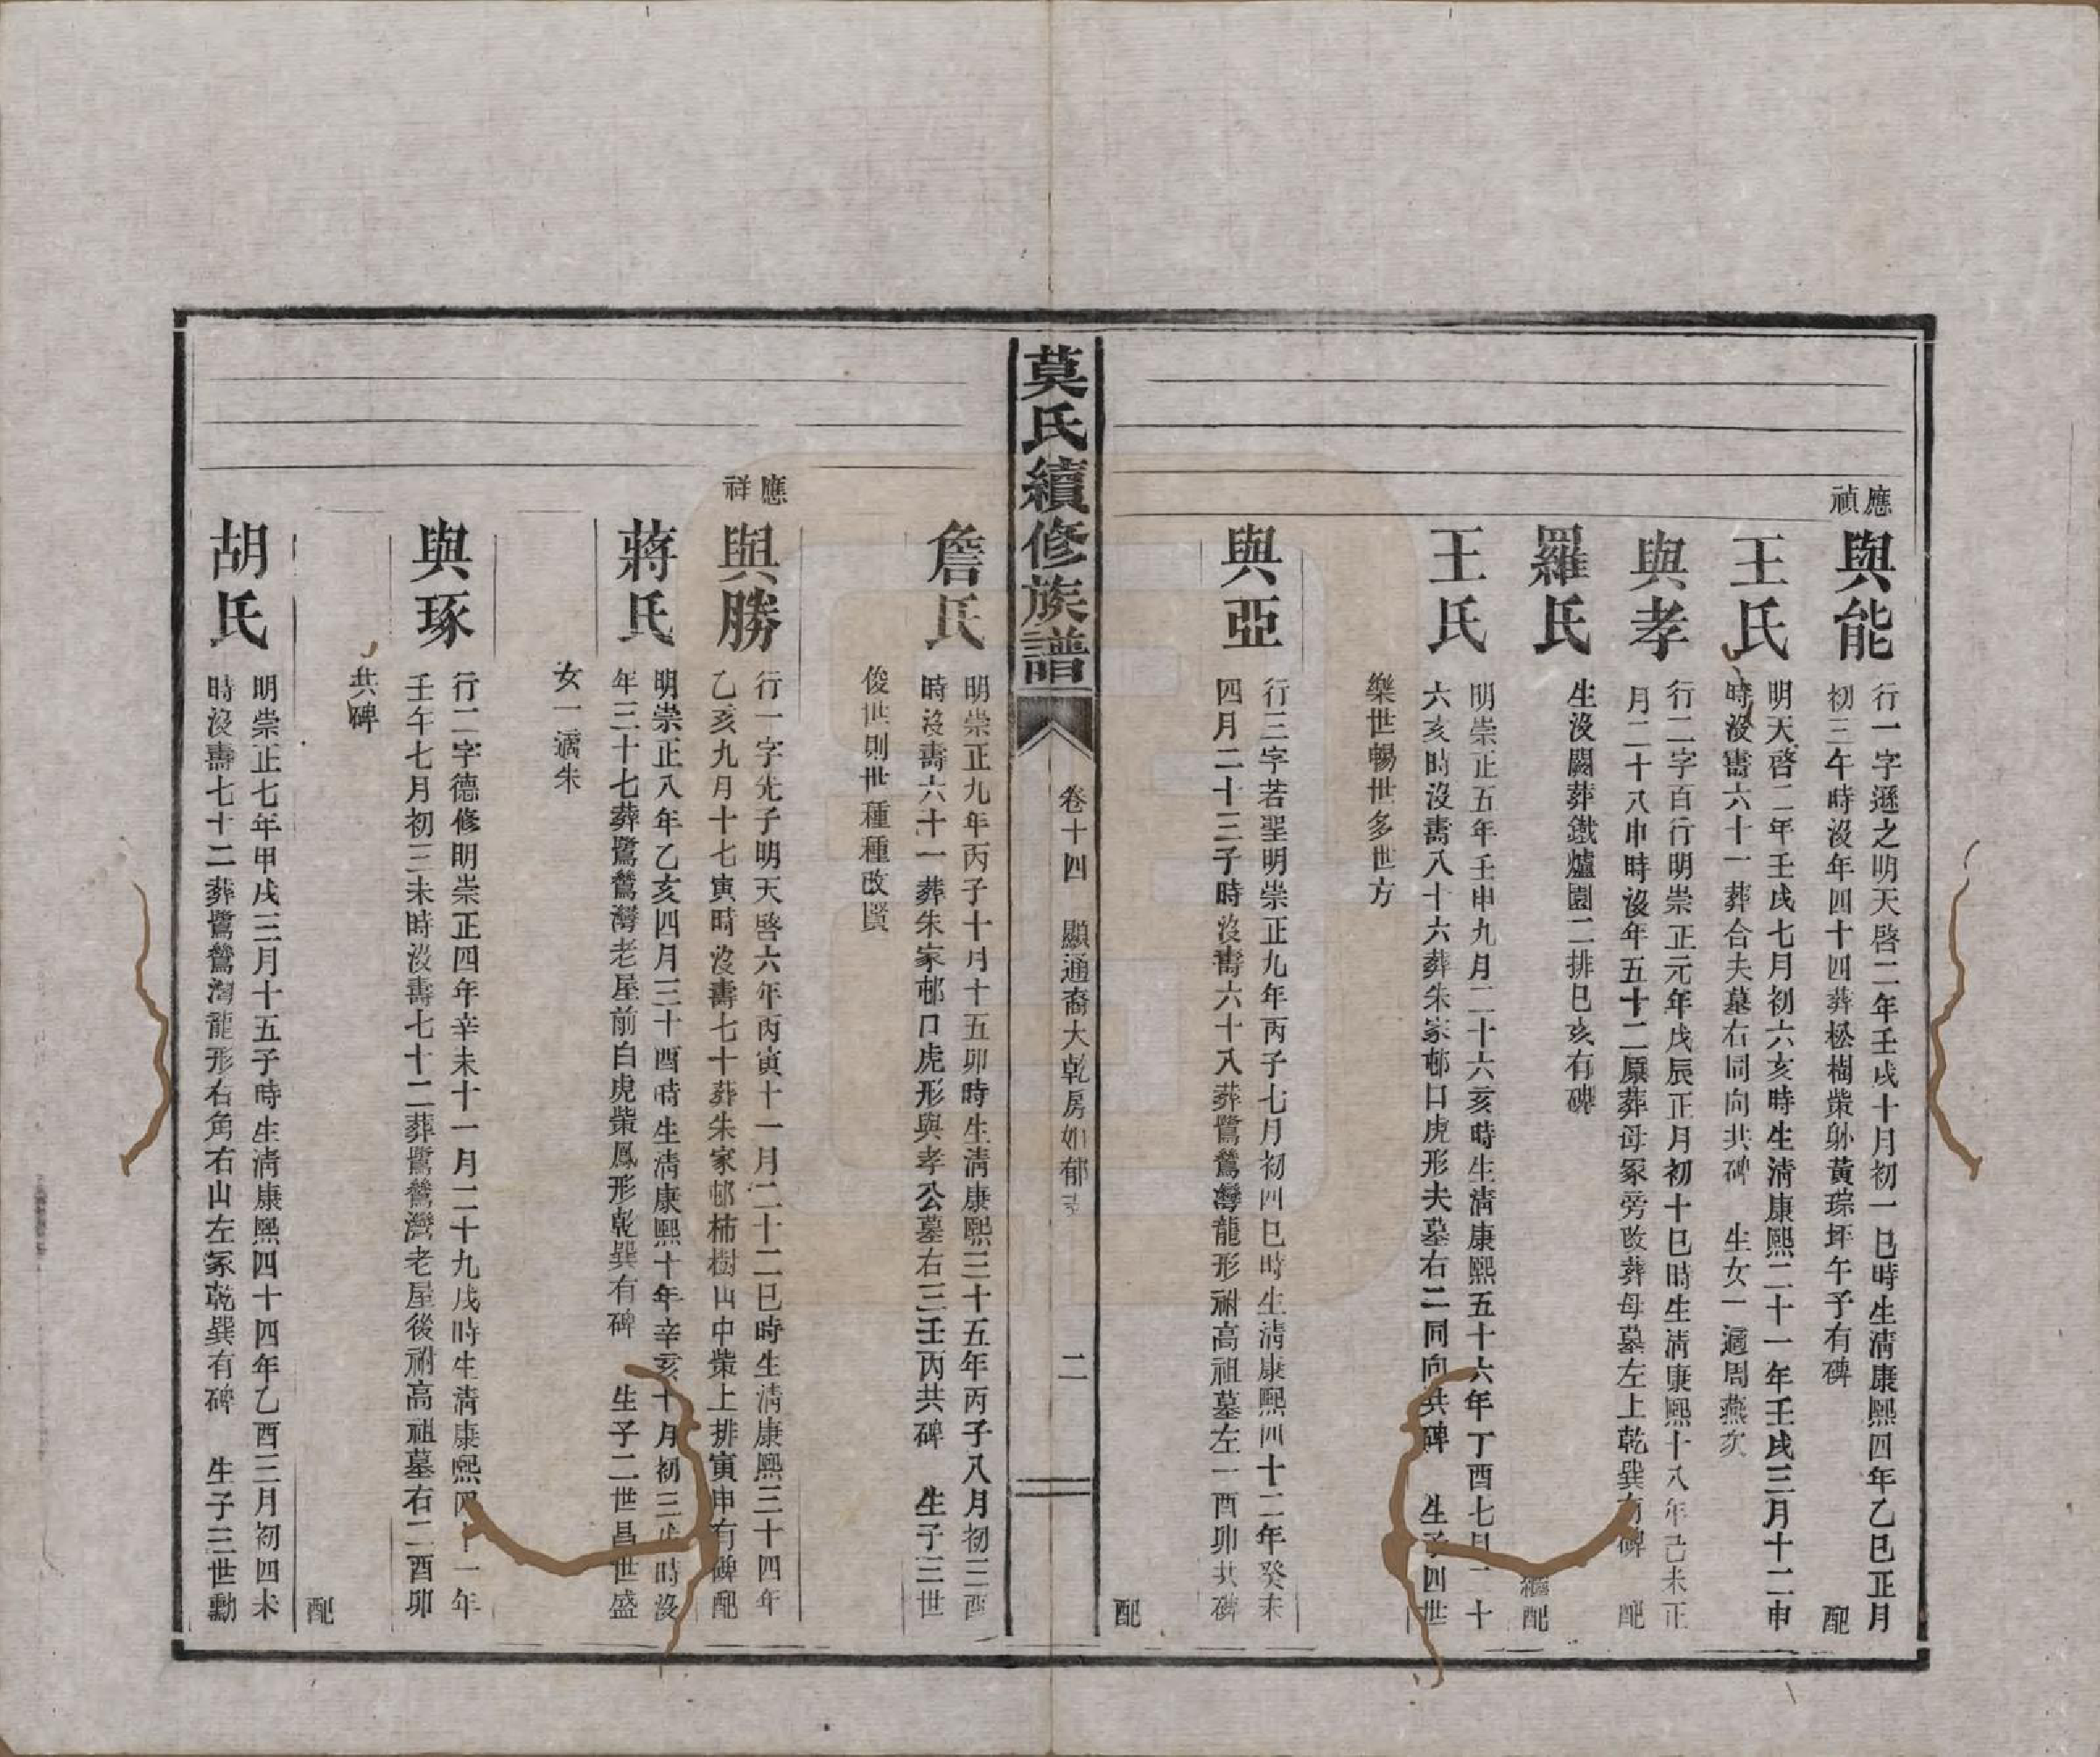 應禎
與能
行一字遜之明天啓二年壬戌十月初一巳時生淸康熙四年乙巳正月
初三午時沒年四十四葬松樹柴卧黃琮坪午子有碑　配
王氏
明天啓二年壬戌七月初六亥時生淸康熙二十一年壬戌三月十二申
時沒壽六十一葬合夫墓右同向共碑　生女一適周燕次
與孝
行二字百行明崇正元年戊辰正月初十巳時生淸康熙十八年己未正
月二十八申時沒年五十二原葬母冢旁改葬母墓左上乾巽有碑　配
羅氏
生沒闕葬鐵爐園二排巳亥有碑　繼配
王氏
明崇正五年壬申九月二十六亥時生淸康熙五十六年丁酉七月二十
六亥時沒壽八十六葬朱家邨口虎形夫墓右二同向共碑　生子四世
樂世暢世多世方
與亞
行三字若聖明崇正九年丙子七月初四巳時生淸康熙四十二年癸未
四月二十三子時沒壽六十八葬鷺鶿灣龍形祔高祖墓左一酉卯共碑
配
莫氏續修族譜
卷十四　顯通裔大乾房如郁
二
詹氏
明崇正九年丙子十月十五卯時生淸康熙三十五年丙子八月初三酉
時沒壽六十一葬朱家邨口虎形與孝公墓右三壬丙共碑　生子三世
俊世則世種種改賢
應祥
與勝
行一字光子明天啓六年丙寅十一月二十二巳時生淸康熙三十四年
乙亥九月十七寅時沒壽七十葬朱家邨柿樹山中柴上排寅申有碑配
蔣氏
明崇正八年乙亥四月三十酉時生淸康熙十年辛亥十月初三時沒
年三十七葬鷺鶿灣老屋前白虎柴鳳形乾巽有碑　生子二世昌世盛
女一適朱
與琢
行二字德修明崇正四年辛未十一月二十九戌時生淸康熙四十一年
壬午七月初三未時沒壽七十二葬鷺鶿灣老屋後祔高祖墓右二酉卯
共碑　配
胡氏
明崇正七年甲戌三月十五子時生淸康熙四十四年乙酉三月初四未
時沒壽七十二葬鷺鶿灣龍形右角右山左冢乾巽有碑　生子三世勳